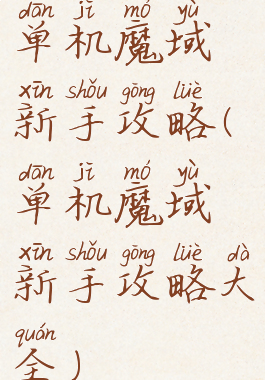 dān jī mó yù
单机魔域
xīn shǒu gōng lüè
新手攻略(
dān jī mó yù
单机魔域
xīn shǒu gōng lüè dà
新手攻略大
quán
全)